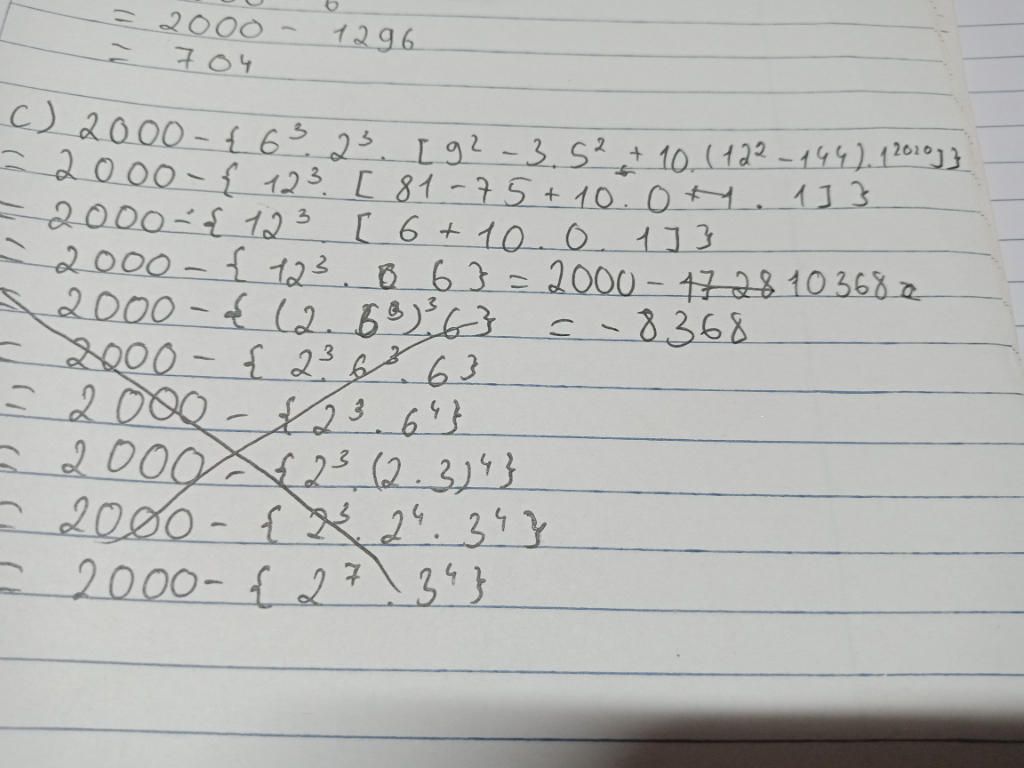 = 2000 - 1296
= 704
c) 2000 - { 6³ . 2³ . [ 9² - 3 . 5² + 10 . (12² - 144) . 1²⁰²⁰ ] }
= 2000 - { 12³ . [ 81 - 75 + 10 . 0 . 1 ] }
= 2000 - { 12³ . [ 6 + 10 . 0 . 1 ] }
= 2000 - { 12³ . 6 } = 2000 - 1728 10368
2000 - { (2 . 6)³ . 6 } = - 8368
= 2000 - { 2³ . 6³ . 6 }
= 2000 - { 2³ . 6⁴ }
= 2000 - { 2³ . (2 . 3)⁴ }
= 2000 - { 2³ . 2⁴ . 3⁴ }
= 2000 - { 2⁷ . 3⁴ }